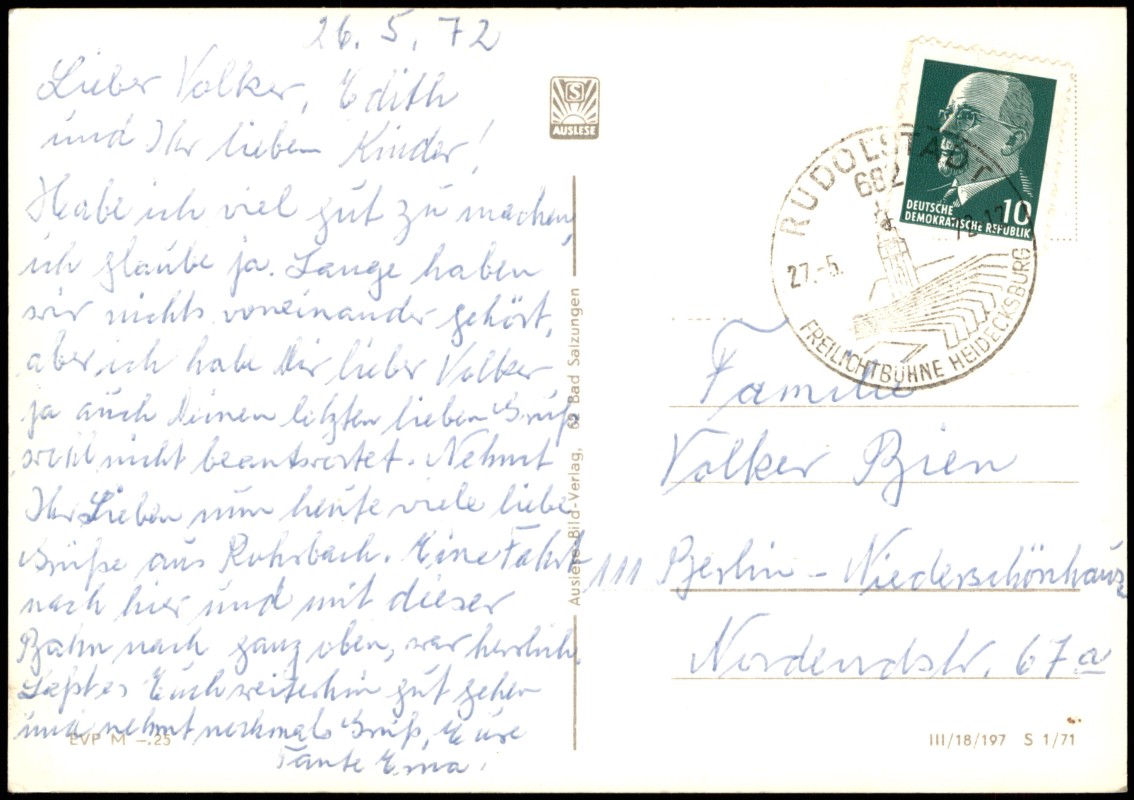 26. 5. 72
Lieber Volker, Edith
und Ihr lieben Kinder!
Habe ich viel gut zu machen,
ich glaube ja. Lange haben
wir nichts voneinander gehört,
aber ich habe Dir lieber Volker
ja auch Deinen letzten lieben Gruß
wohl nicht beantwortet. Nehmt
Ihr Lieben nun heute viele liebe
Grüße aus Rohrbach. Eine Fahrt
nach hier und mit dieser
Bahn nach ganz oben, war herrlich.
Laßt es Euch weiterhin gut gehen
und nehmt nochmals Gruß, Eure
Tante Erna.
EVP M -.25
S
AUSLESE
Auslese-Bild-Verlag, 62 Bad Salzungen
DEUTSCHE
DEMOKRATISCHE REPUBLIK
10
RUDOLSTADT
682
27.-5.
FREILICHTBÜHNE HEIDECKSBURG
Familie
Volker Bien
111 Berlin - Niederschönhaus
Nordendstr. 67a
III/18/197 S 1/71